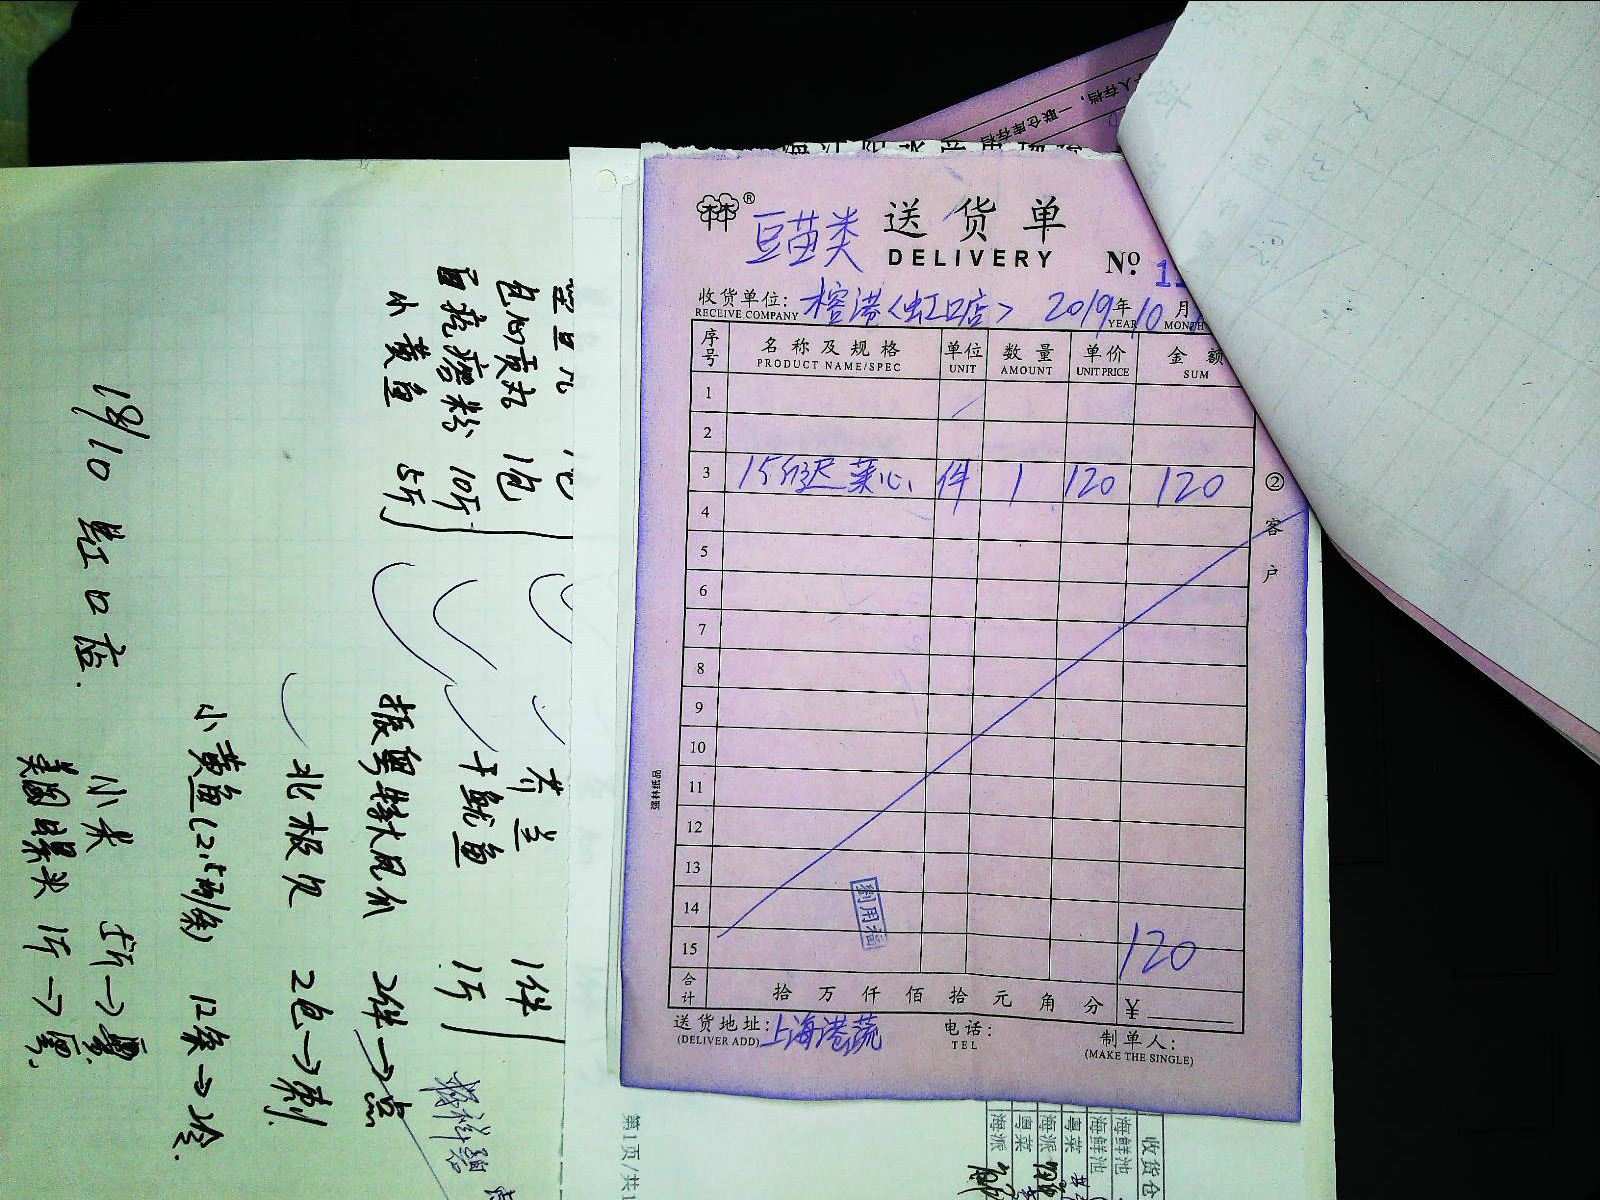 豆苗类 送货单
DELIVERY
№ 1
收货单位: 榕港〈虹口店〉 2019年10月
RECEIVE COMPANY YEAR MONTH
序号 名称及规格 单位 数量 单价 金额
PRODUCT NAME/SPEC UNIT AMOUNT UNIT PRICE SUM
1
2
3 15 迟菜心 件 1 120 120
4
5
6
7
8
9
10
11
12
13
14
15 120
合计 拾 万 仟 佰 拾 元 角 分 ¥
送货地址: 上海港蔬 电话: 制单人:
(DELIVER ADD) TEL (MAKE THE SINGLE)
②客户
强林纸品
一联仓库存档
包心贡丸 1包
疙瘩粉 10斤
小黄鱼 5斤
芥兰 1件
干鱿鱼 1斤
振粤特大凤爪 2件→点
北极贝 2包→刺
小黄鱼(2.5两/条) 12条→冷
18/10 虹口店.
小米 5斤→粤
美国螺头 1斤→粤.
第1页/共1
收货仓
海鲜池
海鲜池
粤菜
海派
粤菜
海派